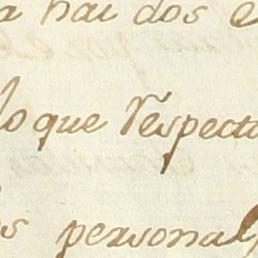 a hai dos e
lo que respecta
s personal